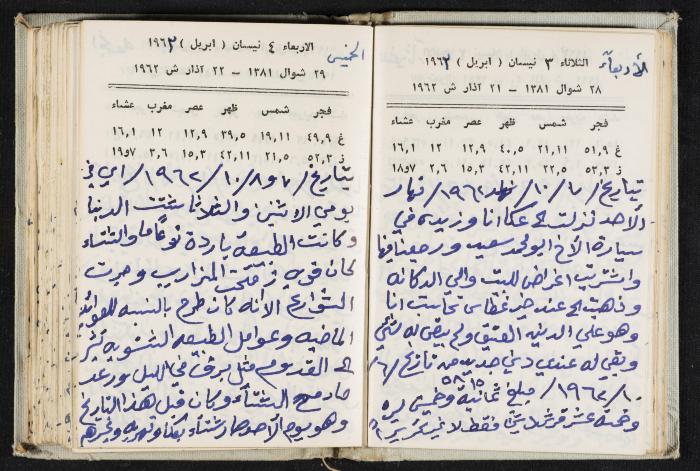 الأربعاء
الثلاثاء ٣ نيسان ( ابريل ) ١٩٦٢
٢٨ شوال ١٣٨١ – ٢١ آذار ش ١٩٦٢
فجر شمس ظهر عصر مغرب عشاء
غ ٥١,٩ ٢١,١١ ٤٠,٥ ١٢,٩ ١٢ ١٦,١
ز ٥٣,٣ ٢٢,٥ ٤٢,١١ ١٥,٣ ٢,٦ ١٨و٧
بتاريخ / ٧ / ١٠ / ١٩٦٢ نهار
الأحد نزلت الى عكا انا وزيده في
سيارة الأخ ابو محمد سعيد ورجعنا فيها
واشتريت اغراض للبيت والى الدكانه
وذهبت الى عند خير غطاس تحاسبت انا
وهو على الدين العتيق ولم يبقى له شيء
وبقي له عندي دين جديد من تاريخ / ٦
١٠ / ١٩٦٢ / مبلغ ثمانية وخمسين ليره
٥٨ ١٥
وخمسة عشر قرش فقط لا غير
الخميس
الاربعاء ٤ نيسان ( ابريل ) ١٩٦٢
٢٩ شوال ١٣٨١ – ٢٢ آذار ش ١٩٦٢
فجر شمس ظهر عصر مغرب عشاء
غ ٤٩,٩ ١٩,١١ ٣٩,٥ ١٢,٩ ١٢ ١٦,١
ز ٥٢,٣ ٢١,٥ ٤٢,١١ ١٥,٣ ٣,٦ ١٩و٧
بتاريخ / ٧ و ٨ / ١٠ / ١٩٦٢ / اي في
يومي الاثنين والثلاثاء شتت الدنيا
وكانت الطبيعه باردة نوعاً ما والشتاء
كان قوي فتحت المزاريب وجرت
الشوارع الا أنه كان طرح بالنسبه للعوائد
الماضيه وعوامل الطبيعه الشتويه
الى القدوم مثل برق في الليل ورعد
صار مع الشتاء وكان قبل هذا التاريخ
وهو يوم الأحد صار شتاء بعكا ونهريه وغيرهم